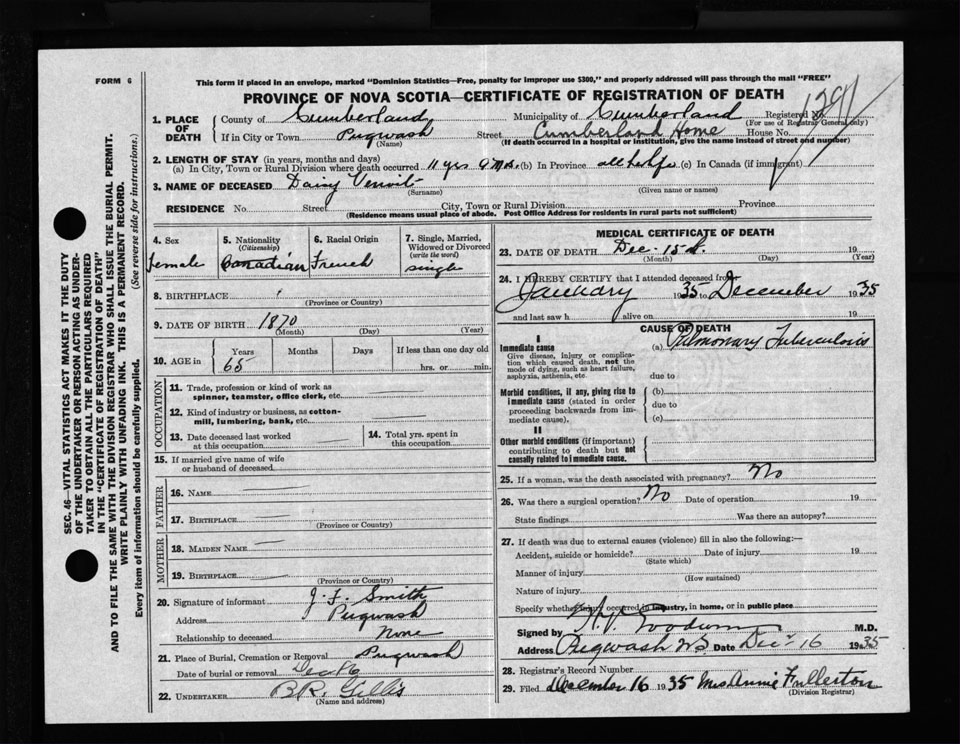 FORM 6
This form if placed in an envelope, marked "Dominion Statistics—Free, penalty for improper use $300," and properly addressed will pass through the mail "FREE"
PROVINCE OF NOVA SCOTIA—CERTIFICATE OF REGISTRATION OF DEATH
1. PLACE OF DEATH County of Cumberland Municipality of Cumberland Registered No. 1291
(For use of Registrar General only)
If in City or Town Pugwash Street Cumberland Home House No.
(Name) (If death occurred in a hospital or institution, give the name instead of street and number)
2. LENGTH OF STAY (in years, months and days)
(a) In City, Town or Rural Division where death occurred 11 yrs 9 Mos. (b) In Province all her life (c) In Canada (if immigrant)
3. NAME OF DECEASED Daisy
(Surname) (Given name or names)
RESIDENCE No. Street City, Town or Rural Division Province
(Residence means usual place of abode. Post Office Address for residents in rural parts not sufficient)
4. Sex 5. Nationality (Citizenship) 6. Racial Origin 7. Single, Married, Widowed or Divorced (write the word)
female Canadian French single
8. BIRTHPLACE
(Province or Country)
9. DATE OF BIRTH 1870
(Month) (Day) (Year)
10. AGE in Years Months Days If less than one day old
65 hrs. or min.
OCCUPATION
11. Trade, profession or kind of work as spinner, teamster, office clerk, etc.
12. Kind of industry or business, as cotton-mill, lumbering, bank, etc.
13. Date deceased last worked at this occupation
14. Total yrs. spent in this occupation
15. If married give name of wife or husband of deceased
FATHER
16. NAME
17. BIRTHPLACE
(Province or Country)
MOTHER
18. MAIDEN NAME
19. BIRTHPLACE
(Province or Country)
20. Signature of informant J. F. Smith
Address Pugwash
Relationship to deceased None
21. Place of Burial, Cremation or Removal Pugwash
Date of burial or removal Dec 16
22. UNDERTAKER B.R. Gillis
(Name and address)
MEDICAL CERTIFICATE OF DEATH
23. DATE OF DEATH Dec. 15th 19
(Month) (Day) (Year)
24. I HEREBY CERTIFY that I attended deceased from
January 1935 to December 1935
and last saw h alive on 19
CAUSE OF DEATH
I
Immediate cause (a) Pulmonary Tuberculosis
Give disease, injury or complication which caused death, not the mode of dying, such as heart failure, asphyxia, asthenia, etc.
due to
Morbid conditions, if any, giving rise to immediate cause (stated in order proceeding backwards from immediate cause).
(b)
due to
(c)
II
Other morbid conditions (if important) contributing to death but not causally related to immediate cause.
25. If a woman, was the death associated with pregnancy? No
26. Was there a surgical operation? No Date of operation 19
State findings Was there an autopsy?
27. If death was due to external causes (violence) fill in also the following:—
Accident, suicide or homicide? Date of injury 19
(State which)
Manner of injury
(How sustained)
Nature of injury
Specify whether injury occurred in industry, in home, or in public place
Signed by M.D.
Address Pugwash NS Date Dec 16 1935
28. Registrar's Record Number
29. Filed December 16 1935 Mrs Annie Fullerton
(Division Registrar)
SEC. 46—VITAL STATISTICS ACT MAKES IT THE DUTY
OF THE UNDERTAKER OR PERSON ACTING AS UNDER-
TAKER TO OBTAIN ALL THE PARTICULARS REQUIRED
IN THE "CERTIFICATE OF REGISTRATION OF DEATH"
AND TO FILE THE SAME WITH THE DIVISION REGISTRAR WHO SHALL ISSUE THE BURIAL PERMIT.
WRITE PLAINLY WITH UNFADING INK. THIS IS A PERMANENT RECORD.
Every item of information should be carefully supplied. (See reverse side for instructions.)